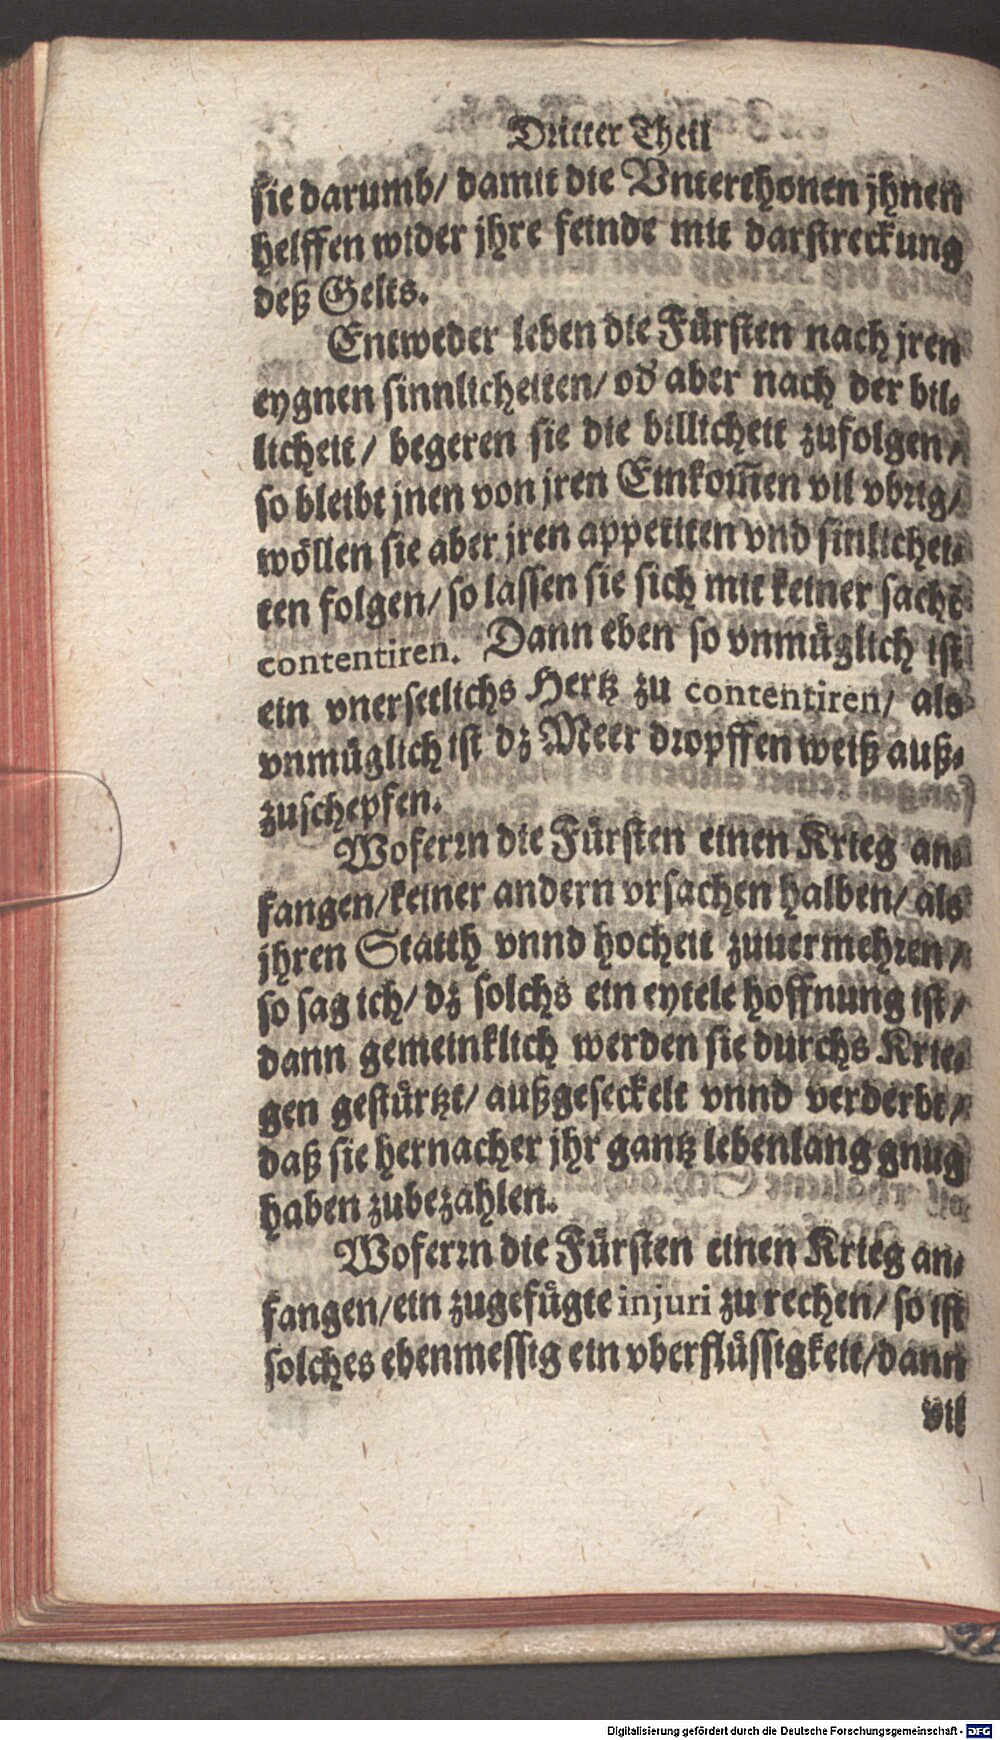 Dritter Theil
sie darumb/ damit die Vnterthonen jhnen
helffen wider jhre feinde mit darstreckung
deß Gelts.
Entweder leben die Fürsten nach jren
eygnen sinnlicheiten/ oď aber nach der bil-
licheit/ begeren sie die billicheit zufolgen/
so bleibt jnen von jren Einkom̃en vil vbrig/
wöllen sie aber jren appetiten vnd sinlichei-
ten folgen/ so lassen sie sich mit keiner sachẽ
contentiren. Dann eben so vnmüglich ist
ein vnersetlichs Hertz zu contentiren/ als
vnmüglich ist dz Meer dropffen weiß auß-
zuschepfen.
Woferrn die Fürsten einen Krieg an-
fangen/keiner andern vrsachen halben/ als
jhren Statth vnnd hocheit zuuermehren/
so sag ich/ dz solchs ein eytele hoffnung ist/
dann gemeinklich werden sie durchs Krie-
gen gestürtzt/ außgeseckelt vnnd verderbt/
daß sie hernacher jhr gantz lebenlang gnug
haben zubezahlen.
Woferrn die Fürsten einen Krieg an-
fangen/ein zugefügte injuri zu rechen/ so ist
solches ebenmessig ein vberflüssigkeit/dann
vil
Digitalisierung gefördert durch die Deutsche Forschungsgemeinschaft - DFG